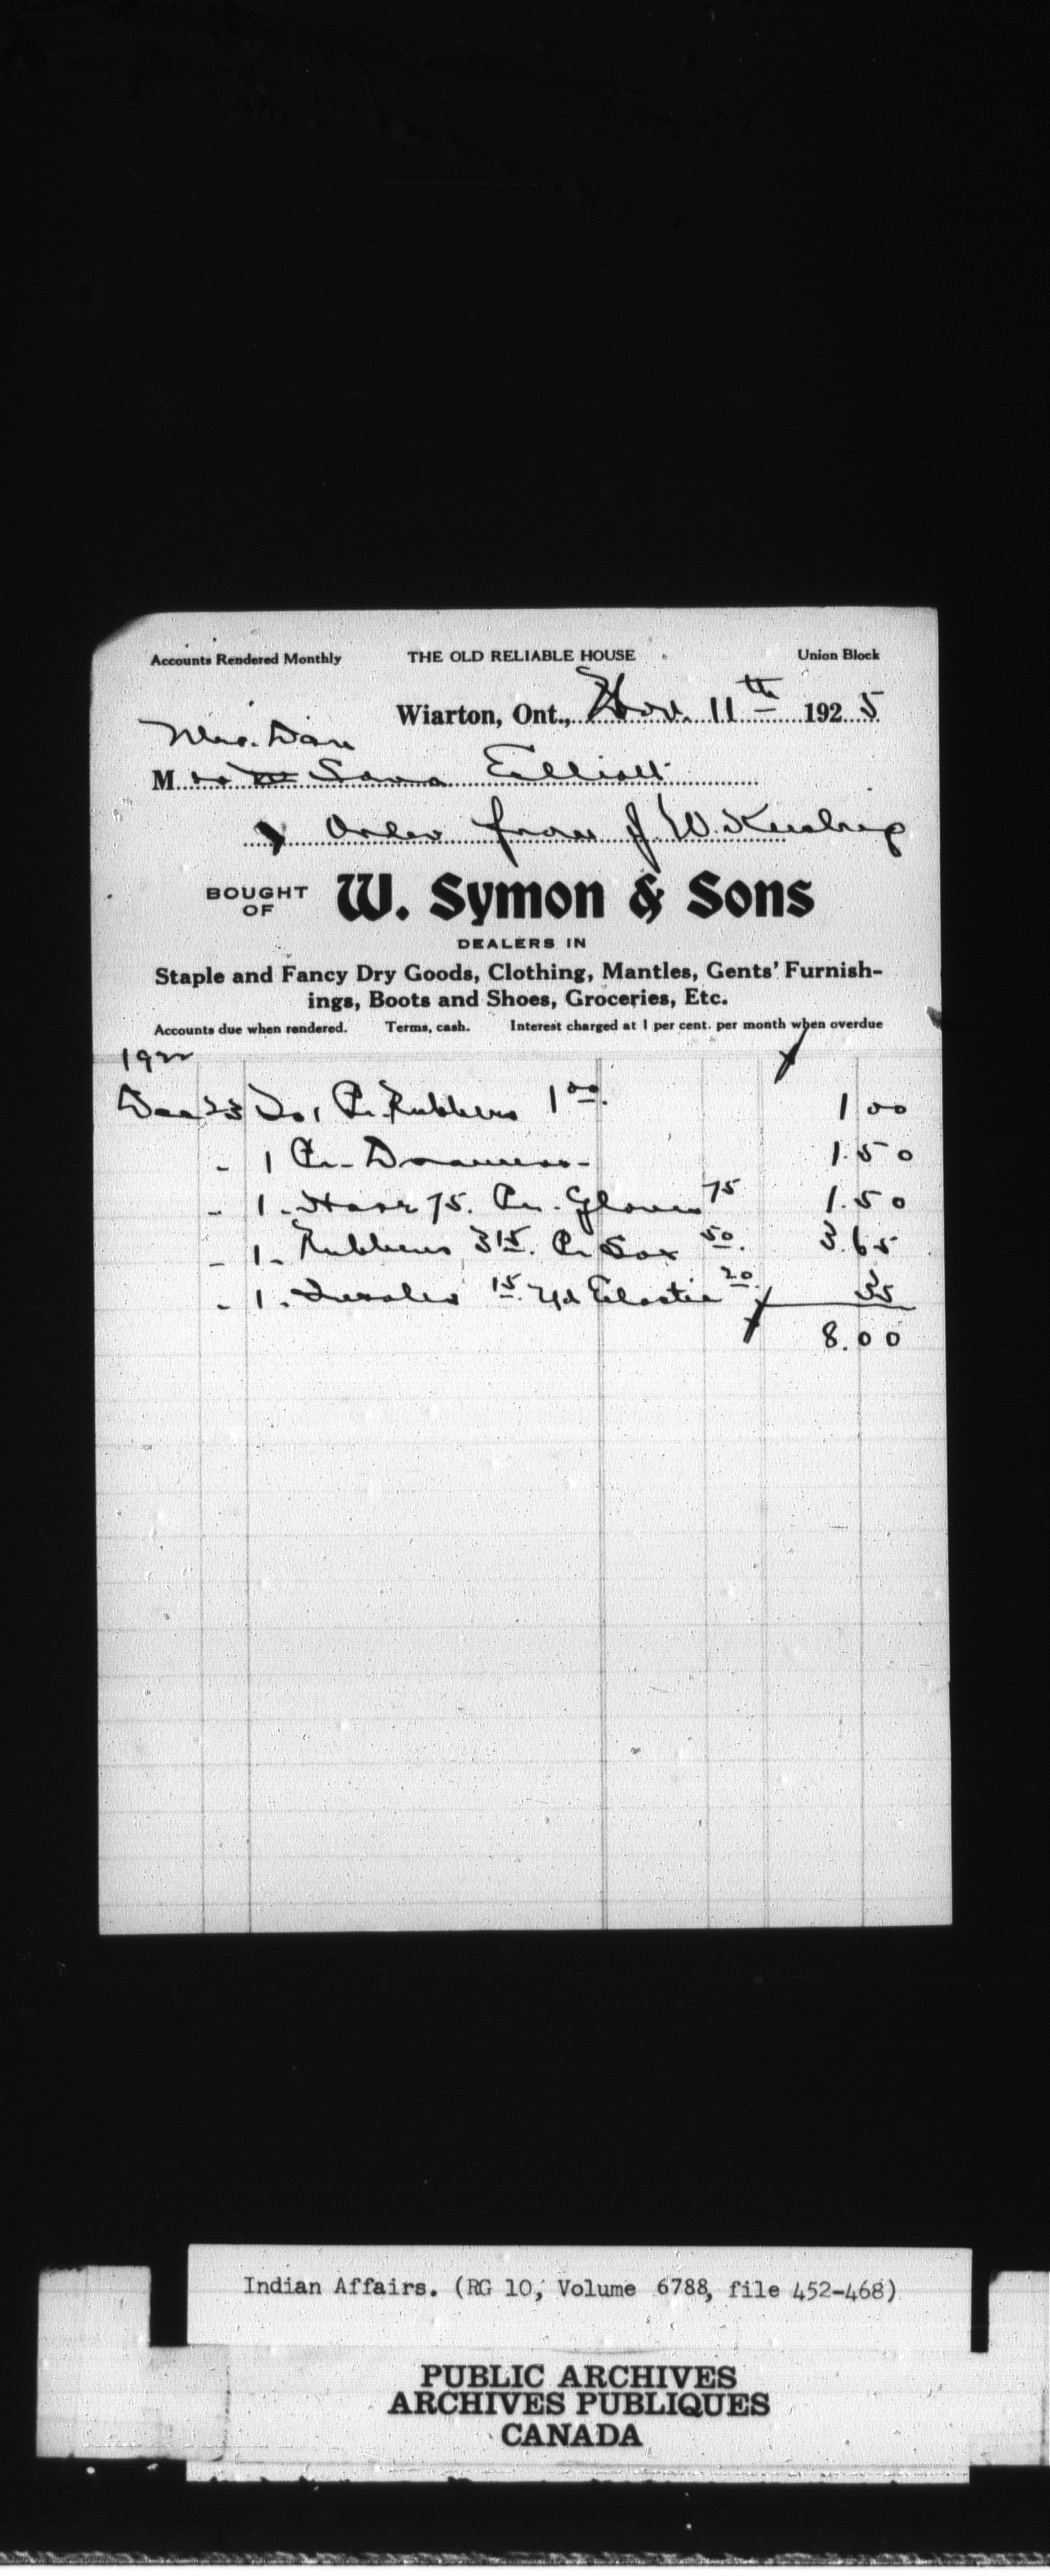 Accounts Rendered Monthly THE OLD RELIABLE HOUSE Union Block
Wiarton, Ont., Nov. 11th 1925
Mrs. Dan
M Elliott
Order from J. W.
BOUGHT OF W. Symon & Sons
DEALERS IN
Staple and Fancy Dry Goods, Clothing, Mantles, Gents' Furnish-
ings, Boots and Shoes, Groceries, Etc.
Accounts due when rendered. Terms, cash. Interest charged at 1 per cent. per month when overdue
1922
Dec 23 To 1 Pr. Rubbers 1 00. 1 00
- 1 Pr. Drawers - 1.50
- 1. Hose 75. Pr. Gloves 75 1.50
- 1- Rubbers 3 15. Pr Sox 50. 3.65
- 1. 15. Yd Elastic 20. 35
8.00
Indian Affairs. (RG 10, Volume 6788, file 452-468)
PUBLIC ARCHIVES
ARCHIVES PUBLIQUES
CANADA